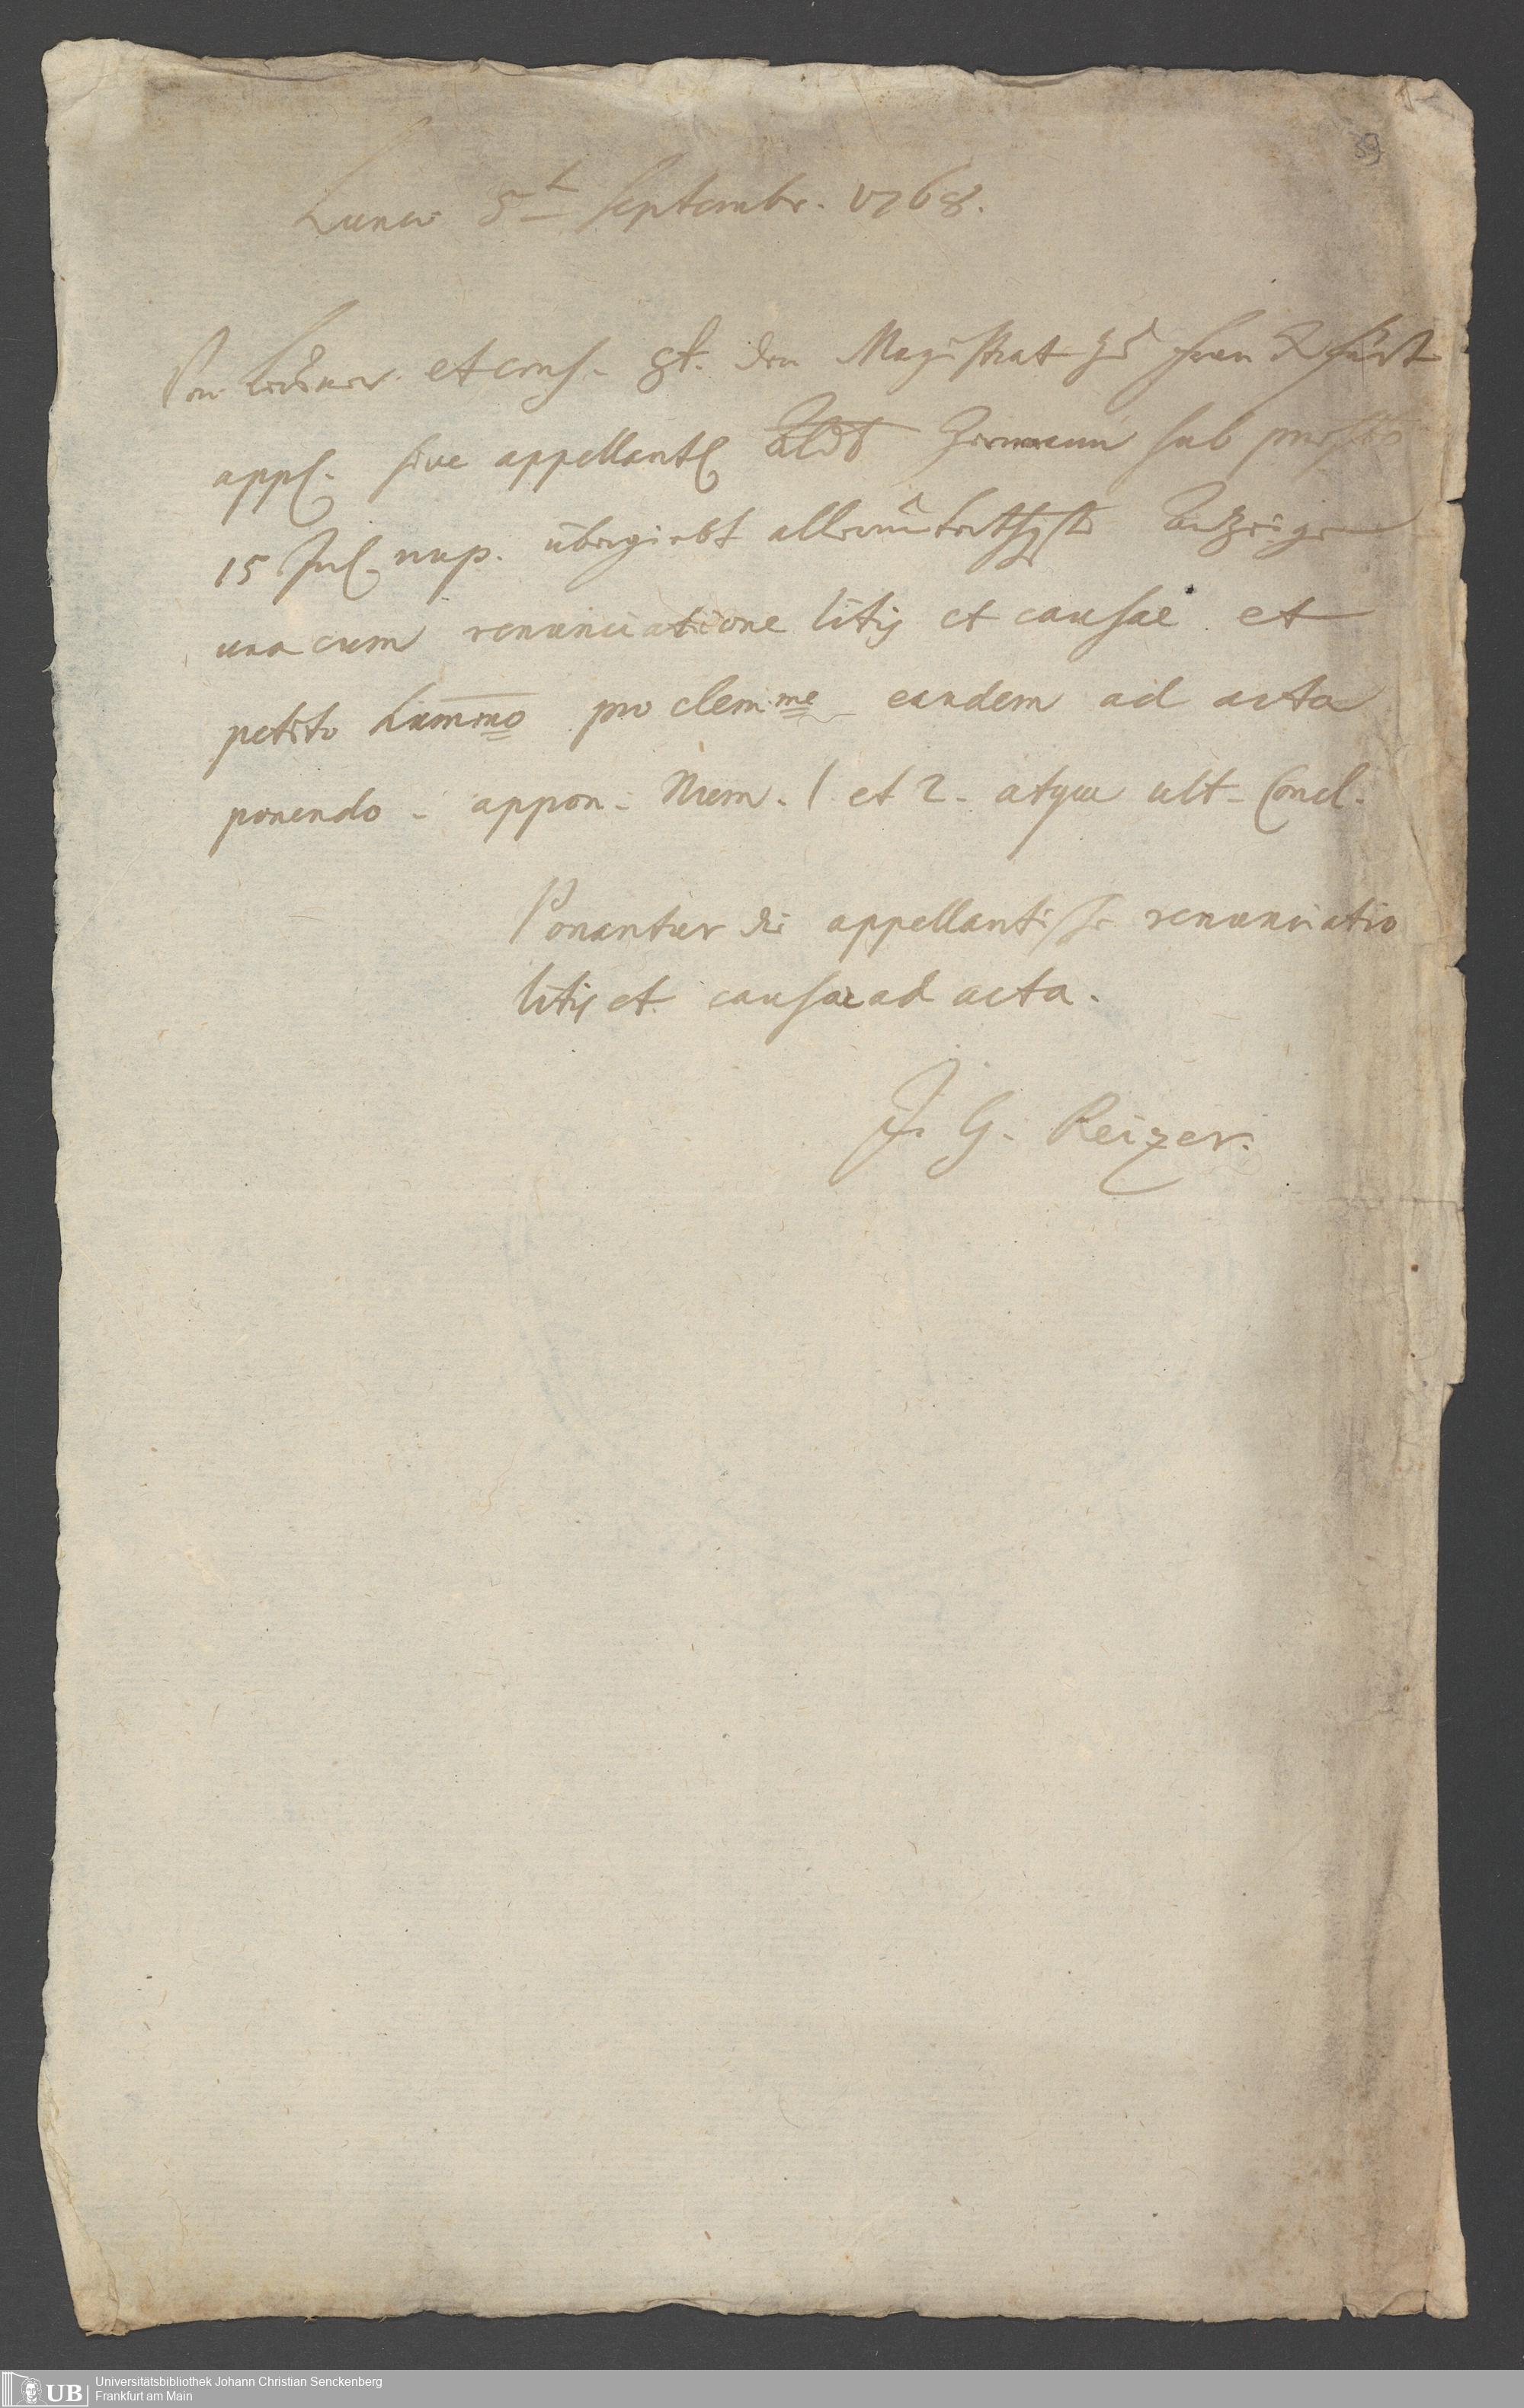 59
Lunae 5t Septembr. 1768.
et cons. gt. den Magistrat zu Franckfurt
app. sive appellant Anwldt Hermann sub
15 Jul. nup. übergiebt allerunterthgste Anzeige
una cum renunciatione litis et causae et
petito hummo pro clemme eandem ad acta
ponendo. appon. Num. 1 et 2. atque ult. Concl.
Ponantur die appellantische renunciatio
litis et causae ad acta.
J. G. Reizer.
UB
Universitätsbibliothek Johann Christian Senckenberg
Frankfurt am Main